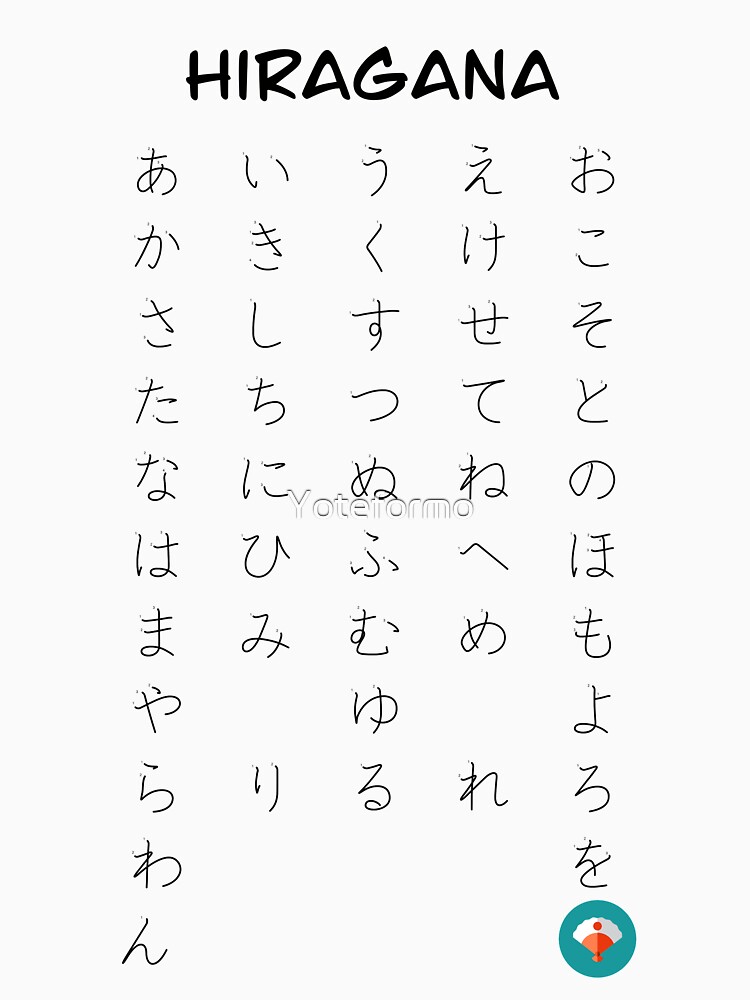 HIRAGANA
あ い う え お
か き く け こ
さ し す せ そ
た ち つ て と
な に ぬ ね の
Yoteformo
は ひ ふ へ ほ
ま み む め も
や ゆ よ
ら り る れ ろ
わ を
ん